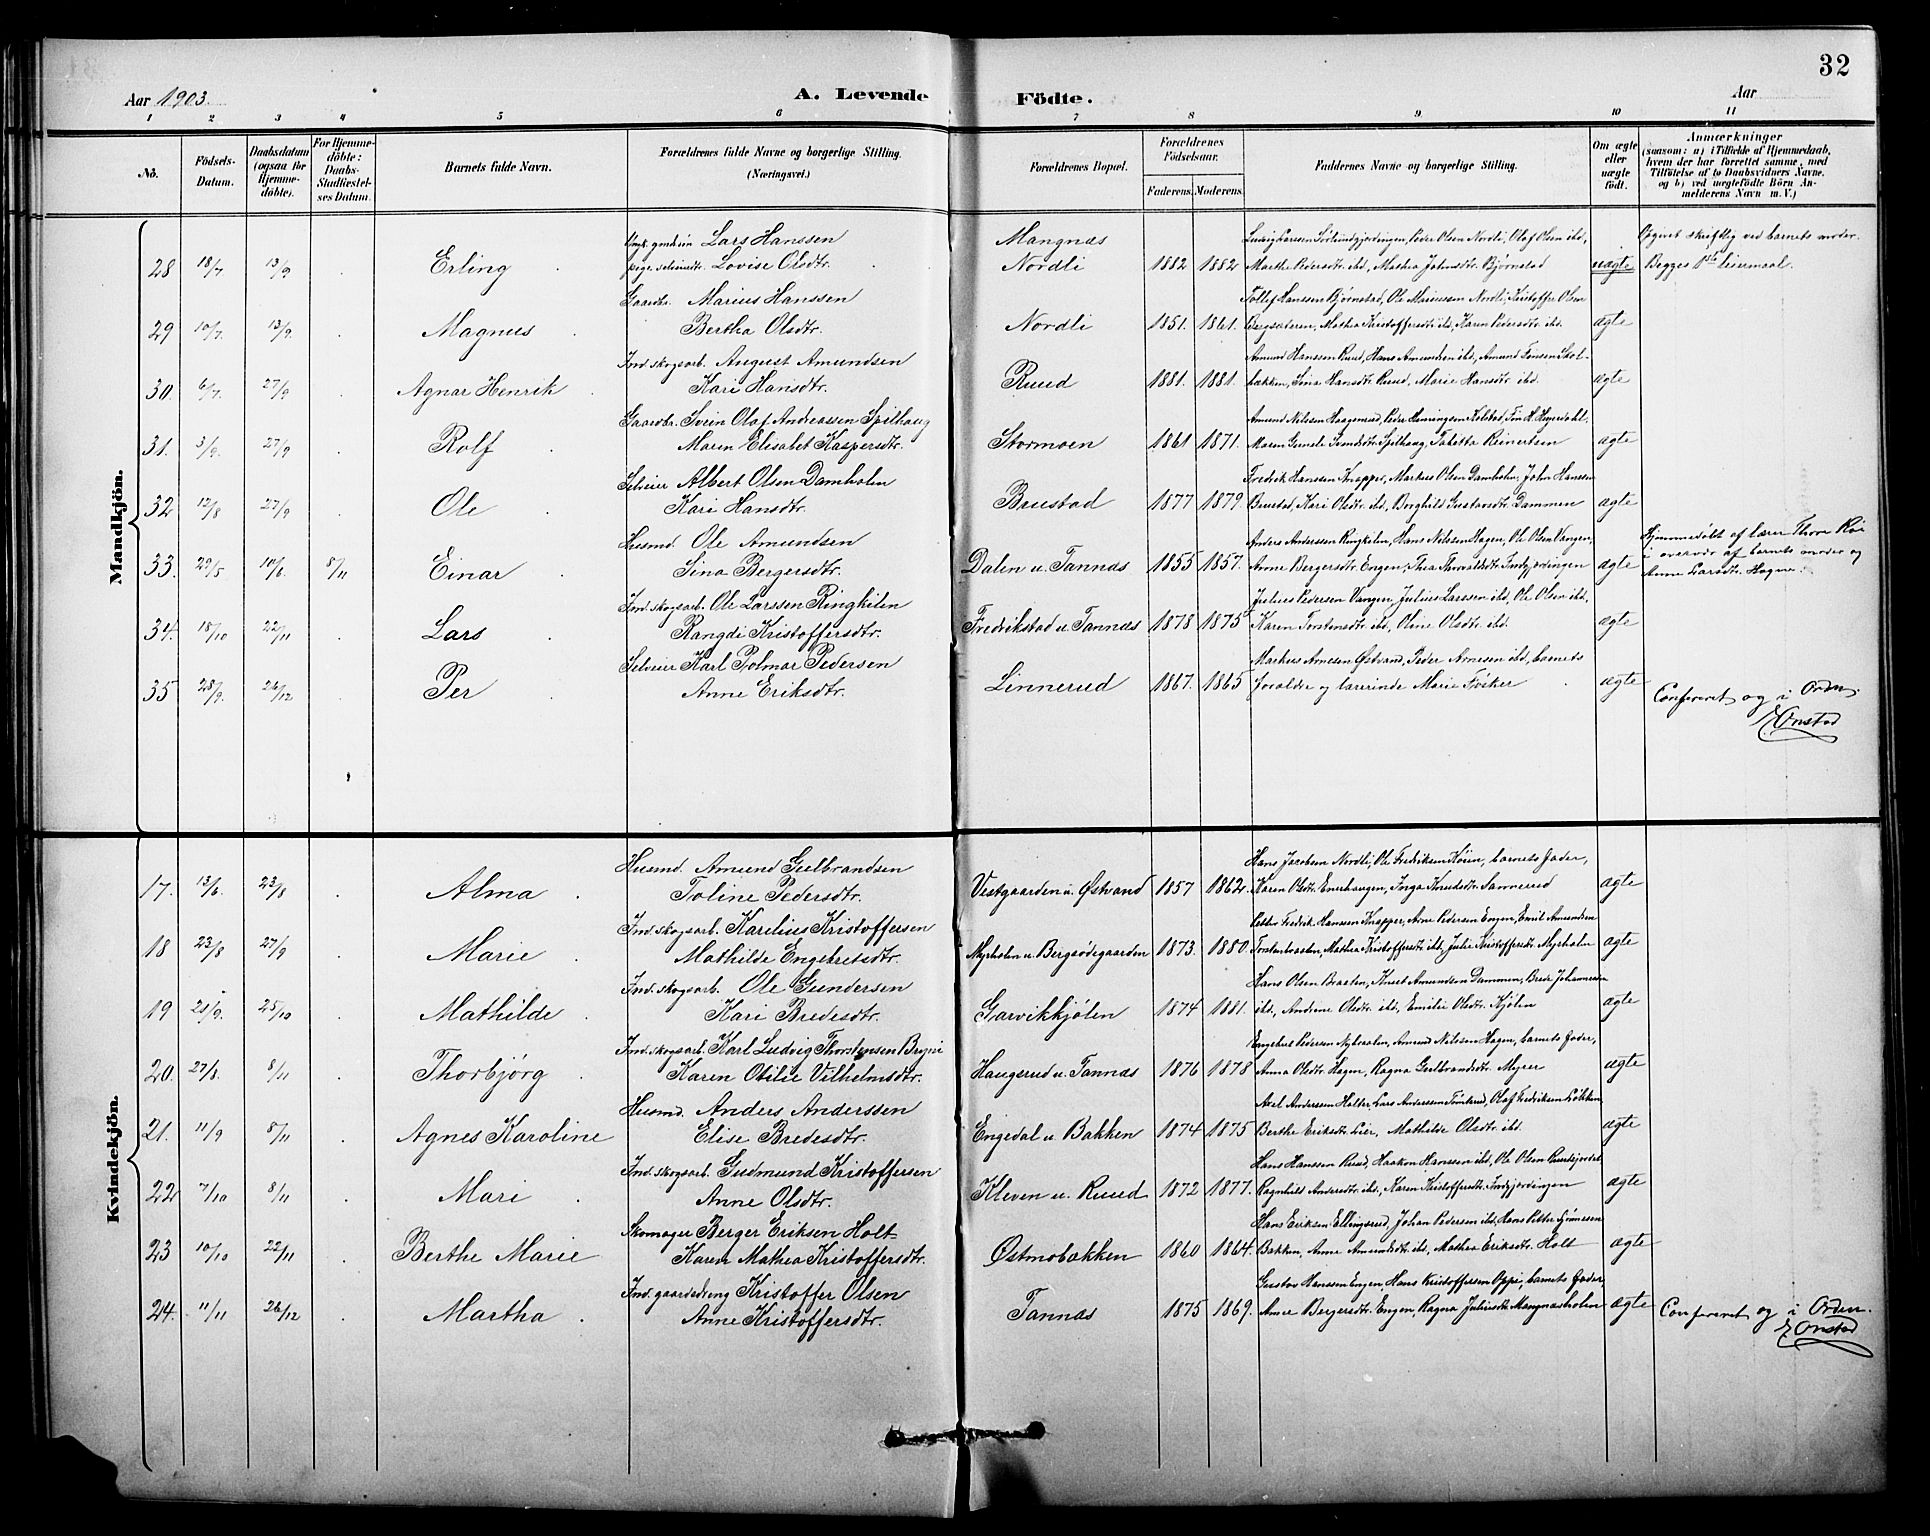 32
Aar 1903.
A. Levende Födte.
Aar
1 2 3 4 5 6 7 8 9 10 11
No.
Födsels-Datum.
Daabsdatum (ogsaa for Hjemmedöbte).
For Hjemmedöbte: Daabs-Stadfæstelses Datum.
Barnets fulde Navn.
Forældrenes fulde Navne og borgerlige Stilling. (Næringsvei.)
Forældrenes Bopæl.
Forældrenes Födselsaar.
Faderens. Moderens.
Faddernes Navne og borgerlige Stilling.
Om ægte eller uægte födt.
Anmærkninger
(saasom: a) i Tilfælde af Hjemmedaab, hvem der har forrettet samme, med Tilföielse af to Daabsvidners Navne, og b) ved uægtefödte Börn Anmelderens Navn m. V.)
Mandkjön.
Lars Hanssen Mangnæs Peder Olsen Nordli, Olaf Olsen ibd., Opgivet skriftlig ved barnets moder.
28 18/7 13/9 Erling Lovise Olsdtr. Nordli 1882 1882 Marthe Pedersdtr. ibd., Mathea Johnsdtr. Bjørnstad uægte Begges 1ste leiermaal.
Gaardbr. Marius Hanssen Tollef Hanssen Bjørnstad, Ole Mariussen Nordli, Kristoffer Olsen
29 10/7 13/9 Magnus Bertha Olsdtr. Nordli 1851. 1861. Mathea Kristoffersdtr. ibd., Karen Pedersdtr. ibd. ægte
Ind. skogsarb. August Amundsen Amund Hanssen Ruud, Hans Amundsen ibd., Amund
30. 6/7 27/9 Agnar Henrik Kari Hansdtr. Ruud 1881. 1881. bakken, Sina Hansdtr. Ruud, Marie Hansdtr. ibd. ægte
Gaardbr. Svein Olaf Andreassen Spilhaug Amund Nilssen Haagenrud, Peder Henningsen Kolstad,
31. 3/9. 27/9 Rolf Maren Elisabet Kaspersdtr. Stormoen 1861 1871. Maren Spilhaug, Reinertsen ægte
Selveier Albert Olsen Damholen Fredrik Hanssen Knapper, Markus Olsen Damholen, John Hanssen
32 12/8 27/9 Ole Kari Hansdtr. Brustad 1877 1879. Brustad, Kari Olsdtr. ibd., Borghild Gustavsdtr. Dammen ægte
Husmd. Ole Amundsen Anders Anderssen Ringkilen, Hans Nilssen Hagen, Ole Olsen Vangen, Hjemmedöbt af lærer Thore
33. 29/5 10/6 8/11 Einar Sina Bergersdtr. Dalen u. Tannæs 1855 1857. Anne Bergersdtr. Engen, Thea Thorvaldsdtr. Indgjordingen ægte i overvær af barnets moder og Anne Larsdtr. Hagne.
Ind. skogsarb. Ole Larssen Ringkilen Julius Pedersen Vangen, Julius Larssen ibd., Ole Olsen ibd.,
34. 18/10 22/11 Lars Rangdi Kristoffersdtr. Fredrikstad u. Tannæs 1878 1875 Karen Torstensdtr. ibd., Oline Olsdtr. ibd. ægte
Selveier Karl Polmar Pedersen Markus Arnesen Østvand, Peder Arnesen ibd., barnets
35 28/9. 26/12 Per Anne Eriksdtr. Linnerud 1867. 1865 forældre og lærerinde Marie ægte Confereret og i Orden.
Onstad
Kvindekjön.
Husmd. Amund Gulbrandsen Hans Jacobsen Nordli, Ole Fredriksen barnets fader,
17. 13/6 23/8 Alma Toline Pedersdtr. Vestgaarden u. Østvand 1857 1862. Karen Olsdtr. Enerhaugen, Inga Knudsdtr. Sannerud ægte
Ind. skogsarb. Karelius Kristoffersen Fredrik Hanssen Knapper, Arne Pedersen Engen, Emil Amundsen
18 23/8 27/9 Marie Mathilde Engebretsdtr. Myrholen u. Bergsødegaarden 1873. 1880. Mathea Kristoffersdtr. ibd., Julie Kristoffersdtr. Myrholen ægte
Ind. skogsarb. Ole Gundersen Hans Olsen Braaten, Knut Amundsen Dammen, Brede Johannesen
19 25/10 Mathilde Kari Bredesdtr. Garvikkjølen 1874 1881. ibd., Andrine Olsdtr. ibd., Emilie Olsdtr. Kjølen ægte
Ind. skogsarb. Karl Ludvig Thorstensen Engebret Pedersen Amund Nilssen Hagen, barnets fader,
20. 27/8. 8/11 Thorbjörg Karen Otilie Vilhelmsdtr. Haugerud u. Tannæs 1876 1878 Anna Olsdtr. Hagen, Ragna Gulbrandsdtr. Myrer ægte
Husmd. Anders Anderssen Axel Anderssen Holter, Lars Anderssen Olaf Fredriksen
21. 11/9 8/11 Agnes Karoline Elise Bredesdtr. Engedal u. Bakken 1874 1875 Berthe Eriksdtr. Lier, Mathilde Olsdtr. ibd. ægte
Ind. skogsarb. Gudmund Kristoffersen Hans Hanssen Ruud, Haakon Hanssen ibd., Ole Olsen
22 7/10 8/11 Mari Anne Olsdtr. Kleven u. Ruud 1872 1877. Ragnhild Andersdtr. ibd., Karen Kristoffersdtr. Indgjordingen ægte
Skomager Berger Eriksen Holt Hans Eriksen Ellingsrud, Johan Pedersen ibd., Hans Petter
23 10/10 22/11 Berthe Marie Karen Mathea Kristoffersdtr. Østmobakken 1860 1864. Bakken, Anne Amundsdtr. ibd., Mathea Eriksdtr. Holt ægte
Ind. gaardsdreng Kristoffer Olsen Gustav Hanssen Engen, Hans Kristoffersen Oppi, barnets fader,
24. 11/11 26/12 Martha Anne Kristoffersdtr. Tannæs 1875 1869. Anne Bergersdtr. Engen, Ragna Juliusdtr. Mangnæsholen ægte Confereret og i Orden.
Onstad